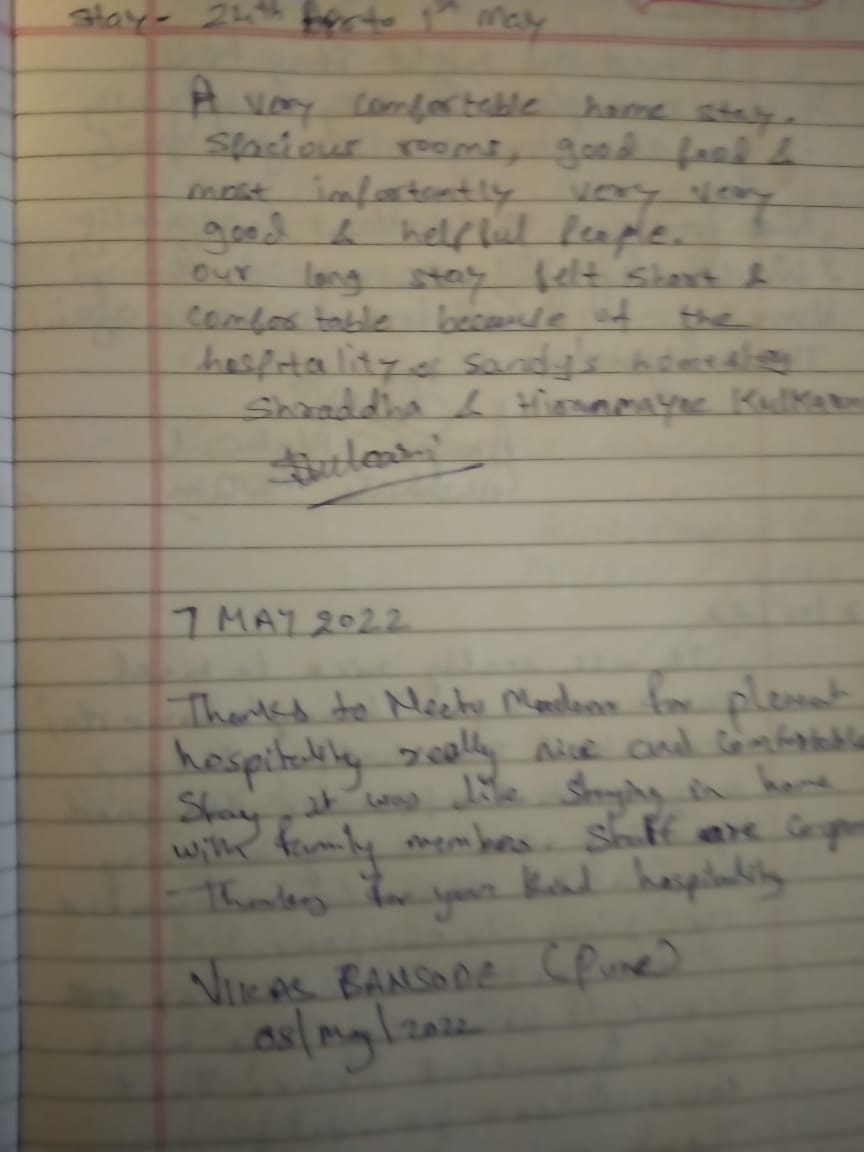 Stay - 24th Apr to 1st May
A very comfortable home stay.
Spacious rooms, good food &
most importantly very very
good & helpful People.
Our long stay felt short &
comfortable because of the
hospitality of Sandy's homestay
Shraddha & Hiranmayee
7 MAY 2022
Thanks to Neetu Madam for pleasant
hospitality really nice and Comfortable
Stay, it was like Staying in home
with family members. Staff are
Thanks for your kind hospitality
VIKAS BANSODE (Pune)
08/May/2022